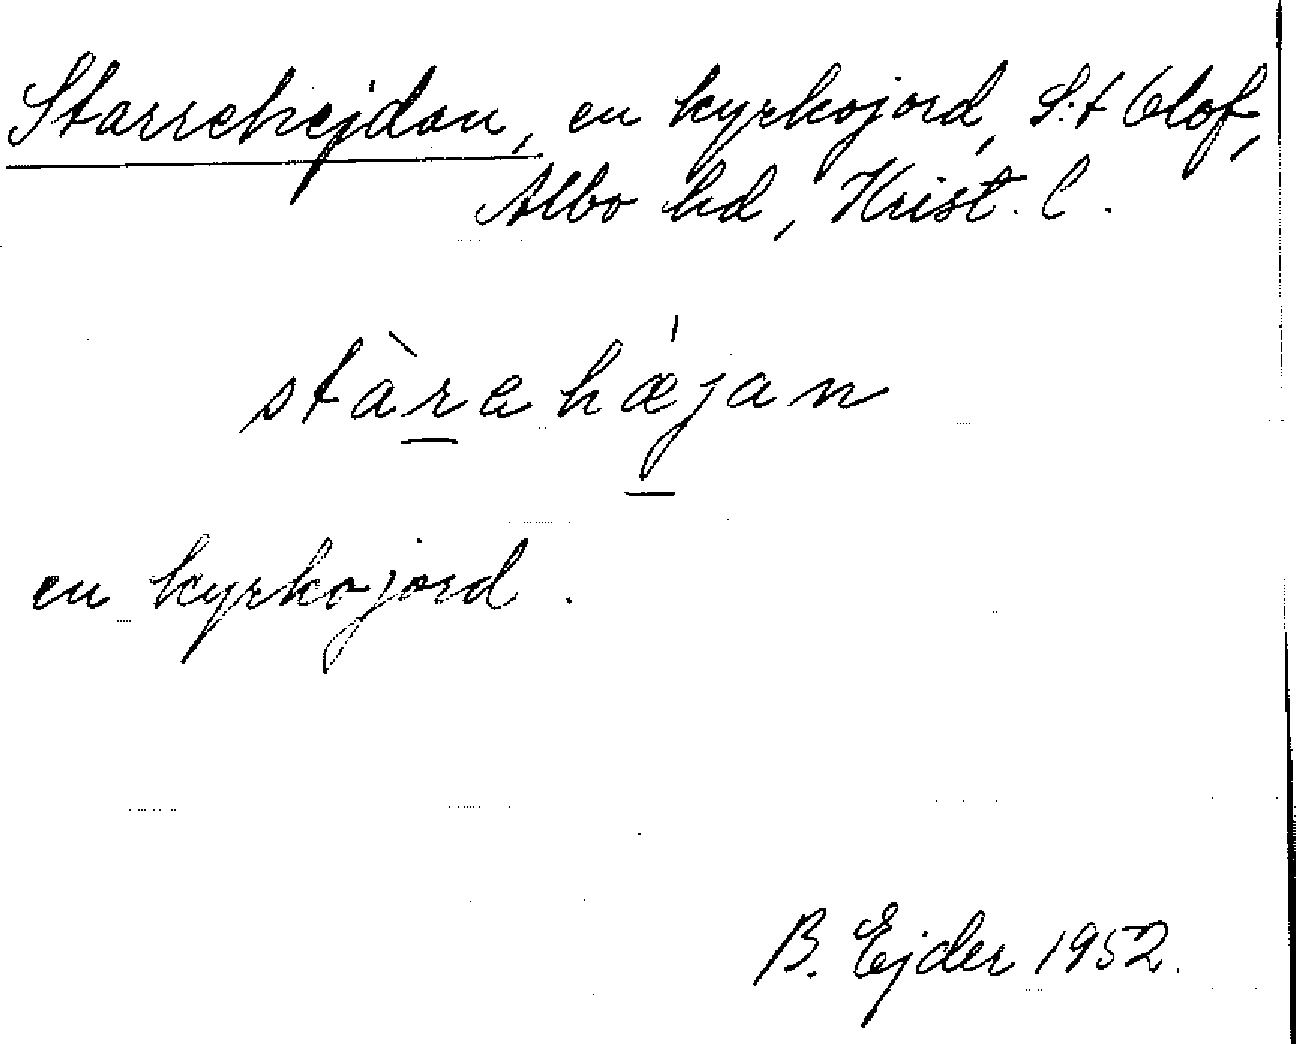 Starrehejdan, en kyrkojord, S:t Olof,
Albo hd, Krist. l.
stàrahæ̀jan
en kyrkojord.
B. Ejder 1952.